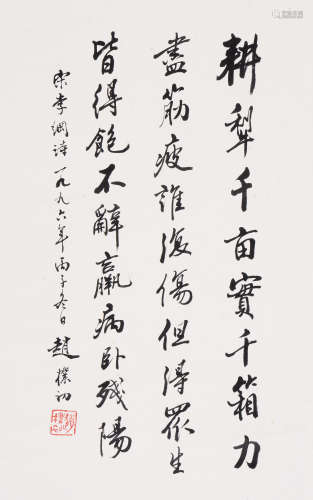 耕犁千亩實千箱力
盡筋疲誰復傷但得眾生
皆得飽不辭羸病卧殘陽
宋李綱詩一九九六年丙子冬日趙樸初